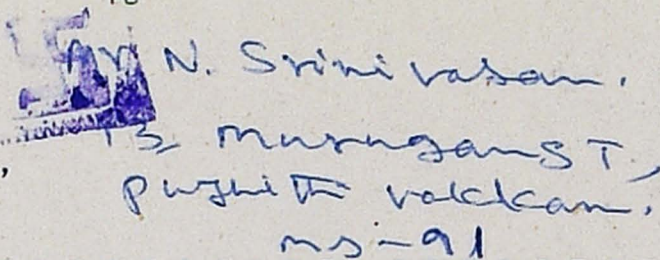 Mr N. Srinivasan.
13 Murugan ST,
puzhithi vakkam.
ms-91